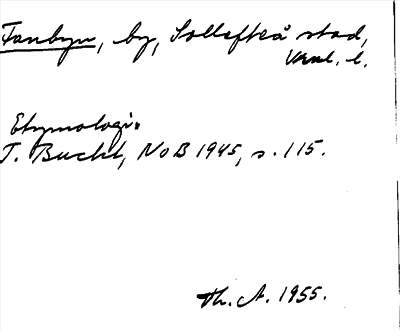 Fanbyn, by, Sollefteå stad,
Vnl. l.
Etymologi.
T. Bucht, NoB 1945, s. 115.
Th. A. 1955.